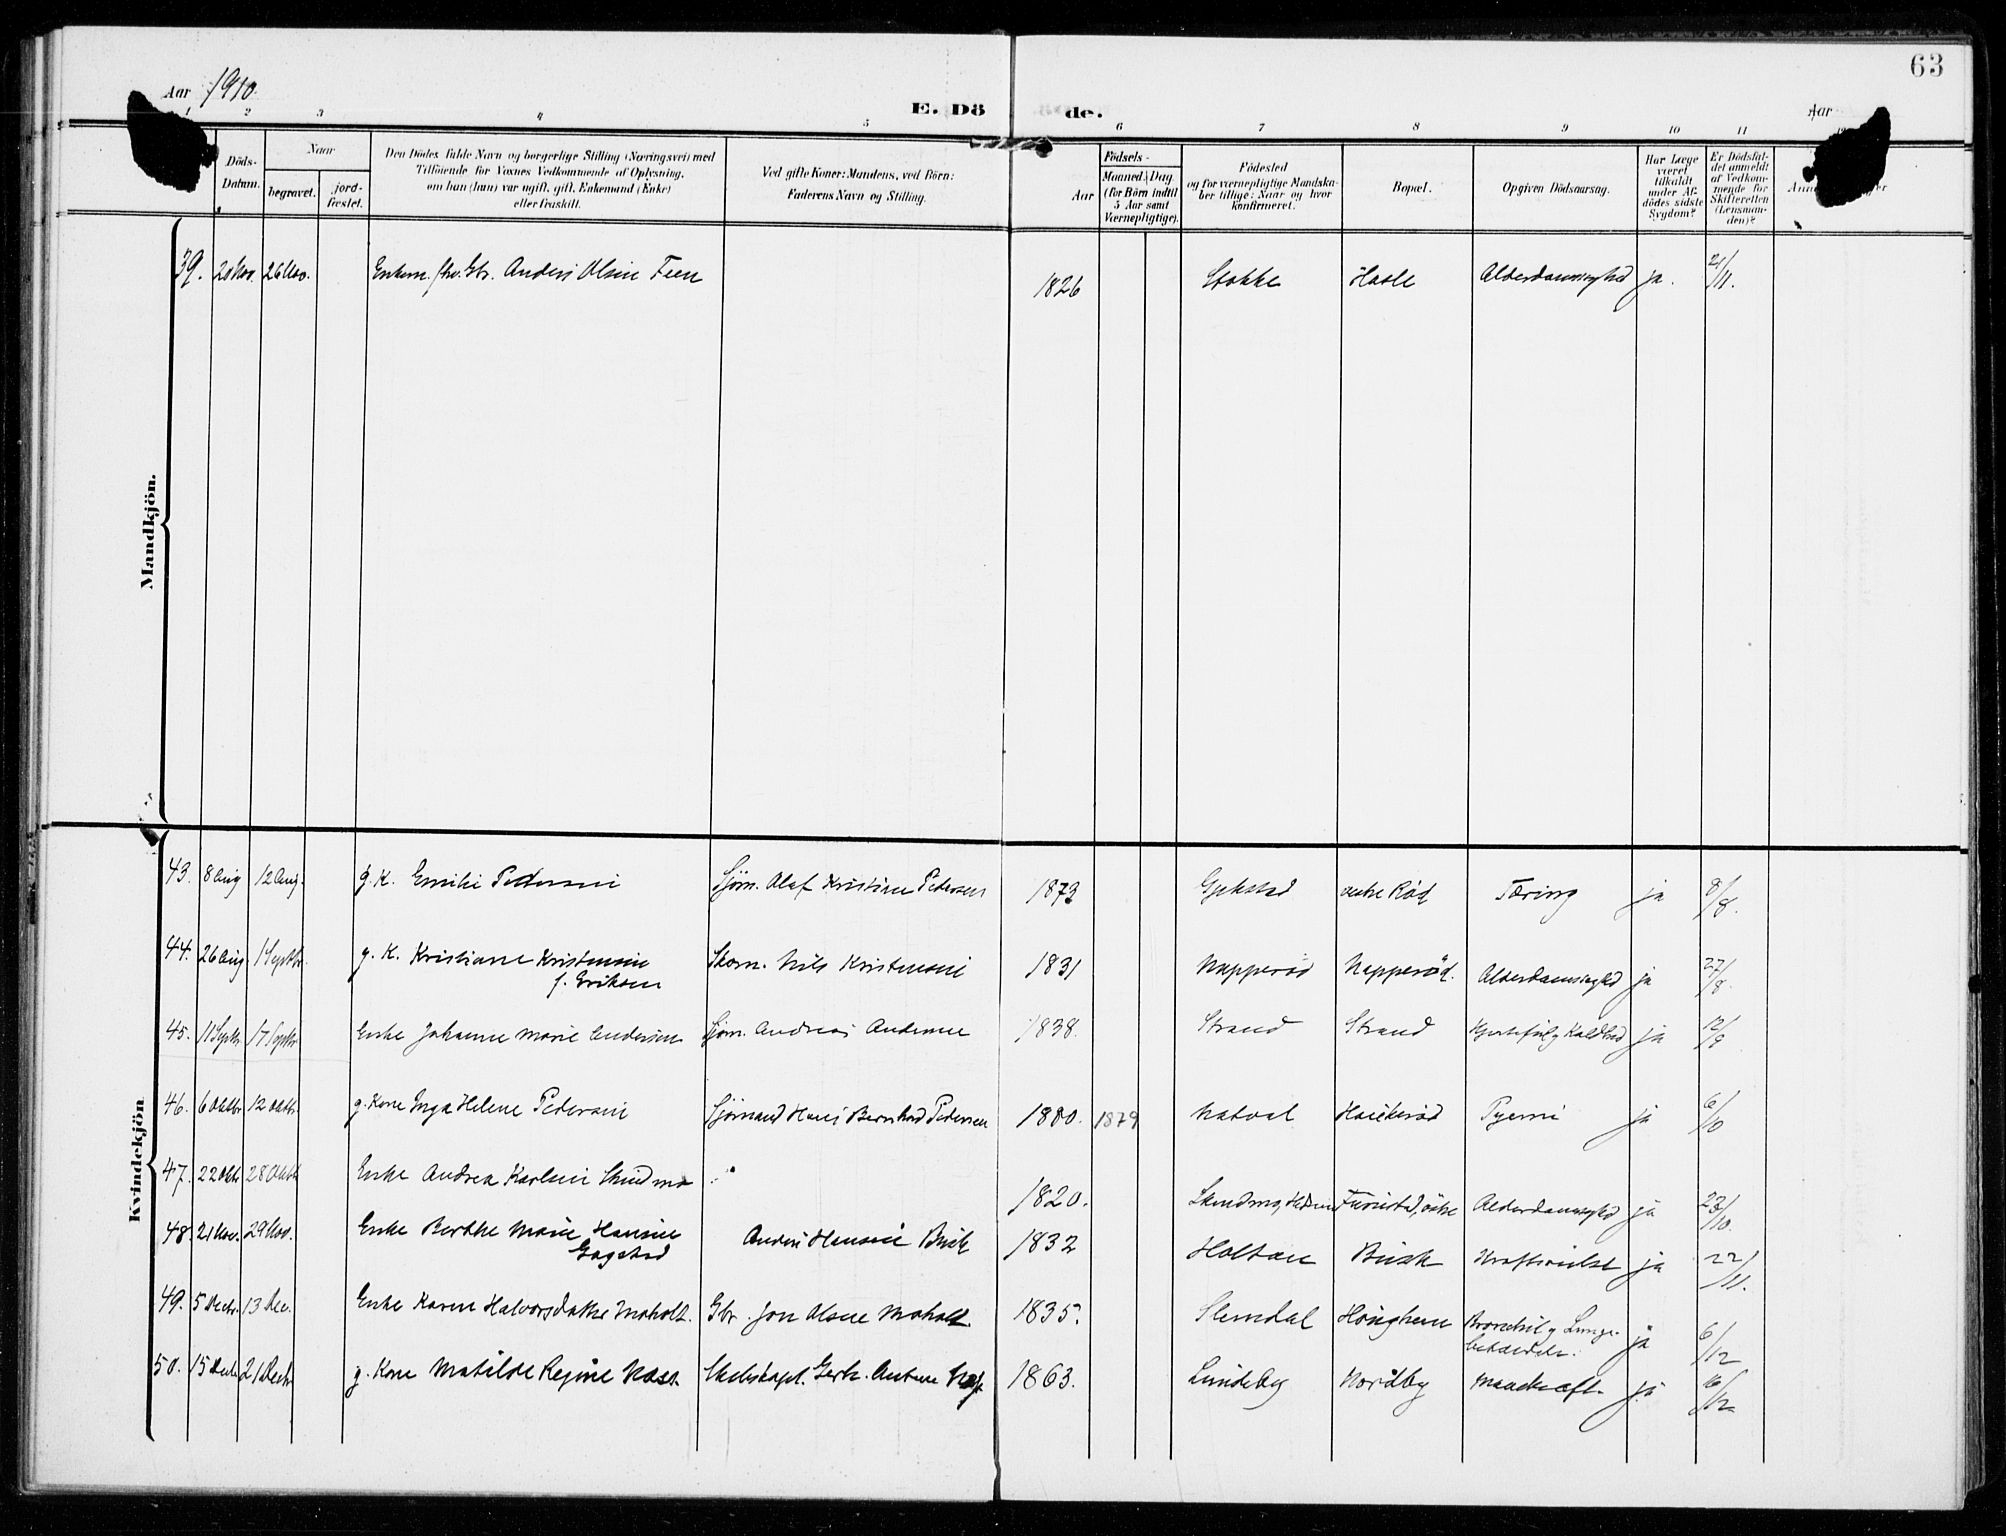 63
Aar 1910.
E. Dö de.
Aar
1 2 3 4 5 6 7 8 9 10 11 12
Döds-Datum.
Naar
begravet.
jord-fæstet.
Den Dödes fulde Navn og borgerlige Stilling (Næringsvei) med
Tilföiende for Voxnes Vedkommende af Oplysning,
om han (hun) var ugift, gift, Enkemand (Enke)
eller fraskilt.
Ved gifte Koner: Mandens, ved Börn:
Faderens Navn og Stilling.
Födsels-
Aar
Maaned. Dag.
(for Börn indtil
5 Aar samt
Værnepligtige).
Födested
og for værnepligtige Mandska-
ber tillige: Naar og hvor
konfirmeret.
Bopæl.
Opgiven Dödsaarsag.
Har Læge
været
tilkaldt
under Af-
dödes sidste
Sygdom?
Er Dödsfal-
det anmeldt
af Vedkom-
mende for
Skifteretten
(Lensman-
den)?
Mandkjön.
39. 20 Nov. 26 Nov. Enkem. fhv. Gbr. Anders Olsen 1826 Stokke Hasle Alderdomssvaghed ja. 21/11.
Kvindekjön
43. 8 Aug 12 Aug. g. K. Emilie Pedersen Sjøm. Olaf Kristian Pedersen 1873 Gjekstad Tæring ja 8/8.
44. 26 Aug. 1 Septbr. g. K. Kristiane Kristensen Nils Kristensen 1831 Napperød Napperød. Alderdomssvaghed ja 27/8.
f. Eriksen
45. 11 Septbr. 17 Septbr Enke Johanne Marie Andersen Sjøm. Andreas Andersen 1838. Strand Strand ja 12/9
46. 6 Oktbr 12 Oktbr. g. Kone Inga Helene Pedersen Sjømand Hans Bernhard Pedersen 1880. 1879 Natval Haukerød Pyemi ja 6/10
47. 22 Oktbr. 28 Oktbr Enke Andrea Karlsen 1820. Alderdomssvaghed ja 23/10.
48. 21 Nov. 29 Nov. Enke Berthe Marie Hansen Anders Hansen Busk 1832 Holtan Busk ja 22/11.
Gogstad
49. 5 Decbr. 13 Dec. Enke Karen Halvorsdatter Moholt. Gbr. Jon Olsen Moholt. 1835. Slemdal Haughem ja 6/12
50. 15 Decbr 21 Decbr g. Kone Matilde Regine Næss. Skibskapt. Anton 1863. Lundeby Nordby Mavekræft. ja 16/12